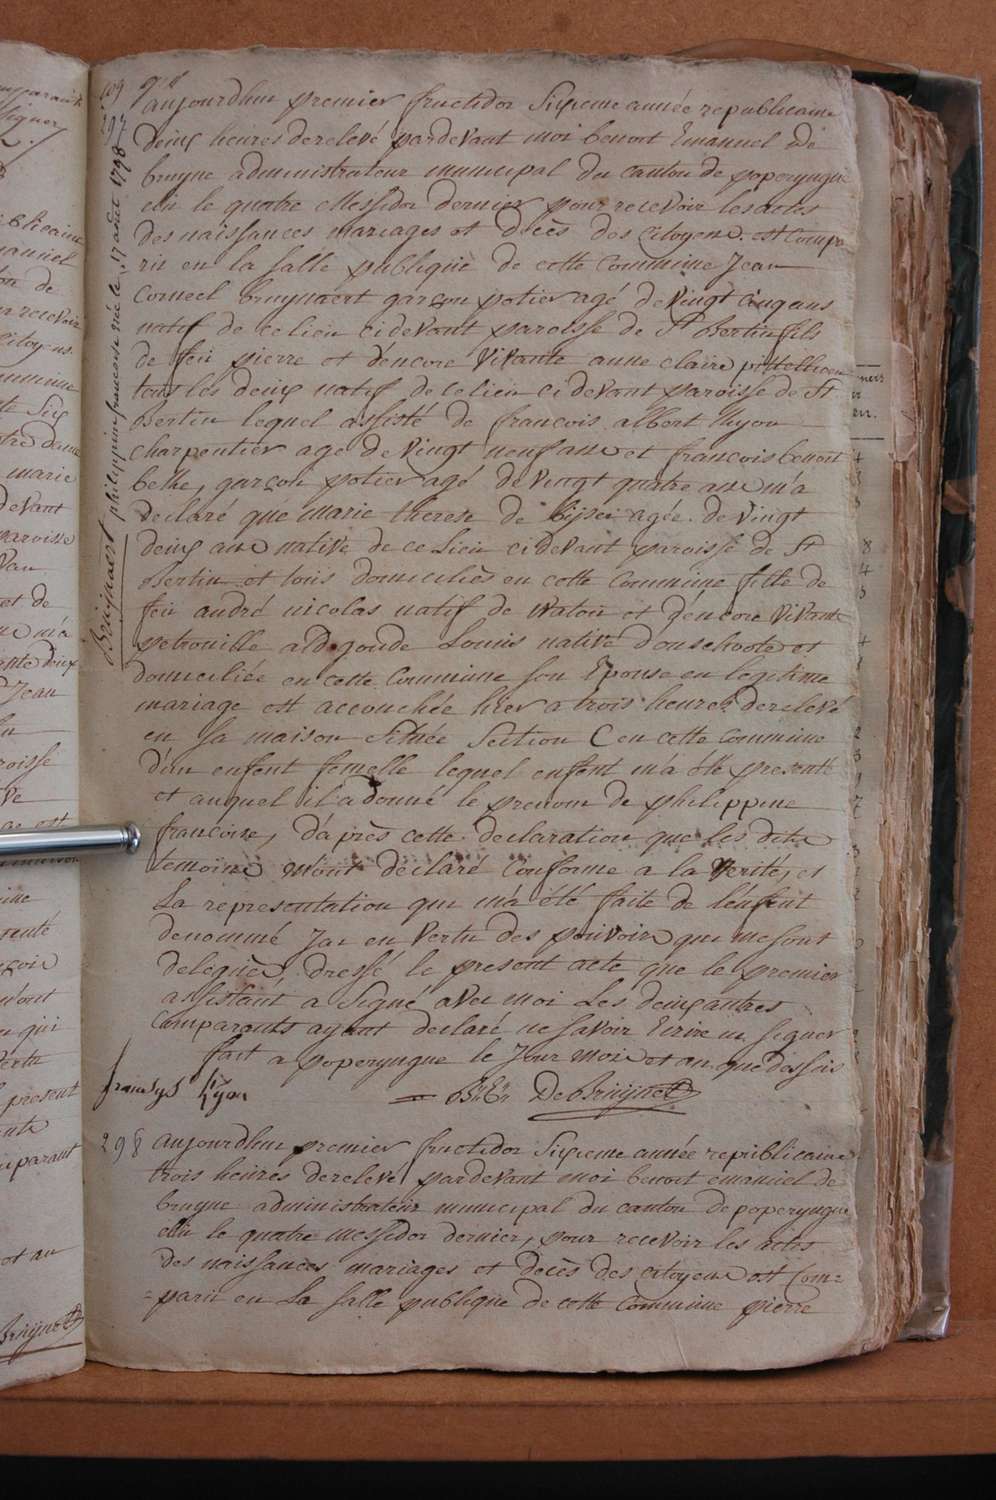 297
aujourdhui premier fructidor Sixieme année republicaine
deux heures de relevé pardevant moi benoit Emanuel De
bruyne administrateur municipal du canton de poperyngue
elu le quatre Messidor dernier pour recevoir les actes
des naissances mariages et decès des citoyens est compa
ru en la salle publique de cette Commune Jean
Corneel bruynaert garçon potier agé de vingt cinq ans
natif de ce lieu cidevant paroisse de St Bertin fils
de feu pierre et d'encore vivante anne claire
tous les deux natif de ce lieu cidevant paroisse de St
Bertin lequel assisté de francois albert Thyon
charpentier age de vingt neuf ans et francois benoit
belle, garçon potier agé de vingt quatre ans m'a
declaré que marie therese de agée de vingt
deux ans native de ce Lieu cidevant paroisse de St
Bertin et tous domiciliés en cette Commune fille de
feu andré nicolas natif de Watou et d'encore vivante
petronille aldegonde Louis native d'onschoote et
domiciliée en cette Commune son Epouse en legitime
mariage est accouchée hier a trois heures de relevé
en sa maison Située Section C en cette commune
d'un enfent femelle lequel enfent m'a été presenté
et auquel il a donné le prenom de philippine
francoise, d'après cette declaration que les dits
temoins m'ont déclaré Conforme a la verité, et
La representation qui m'a été faite de l'enfent
denommé Jai en Vertu des pouvoirs qui me sont
delegués, dressé le present acte que le premier
assistant a Signé avec moi Les deux autres
Comparants ayant declaré ne savoir Ecrire ni signer
fait a poperyngue le Jour mois et an que dessus
fransys tyon
= B: E: De Bruyne
Bruynaert philippine francoise née le 17 aout 1798
298 aujourdhui premier fructidor Sixieme année republicaine
trois heures de relevé pardevant moi benoit emanuel de
bruyne administrateur municipal du canton de poperyngue
elu le quatre messidor dernier, pour recevoir les actes
des naissances mariages et decès des citoyens est Com=
=paru en La salle publique de cette Commune pierre